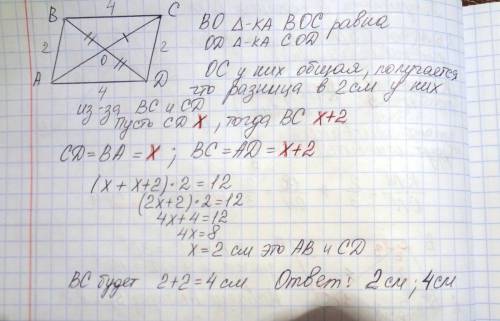 4
B C
2 2
O
A D
4
ВО Δ-ка ВОС равна
OD Δ-ка COD
ОС у них общая, получается
что разница в 2см у них
из-за ВС и CD
Пусть CD x, тогда ВС x+2
CD=BA=x; BC=AD=x+2
(x+x+2)·2=12
(2x+2)·2=12
4x+4=12
4x=8
x=2 см это АВ и CD
ВС будет 2+2=4см Ответ: 2см; 4см